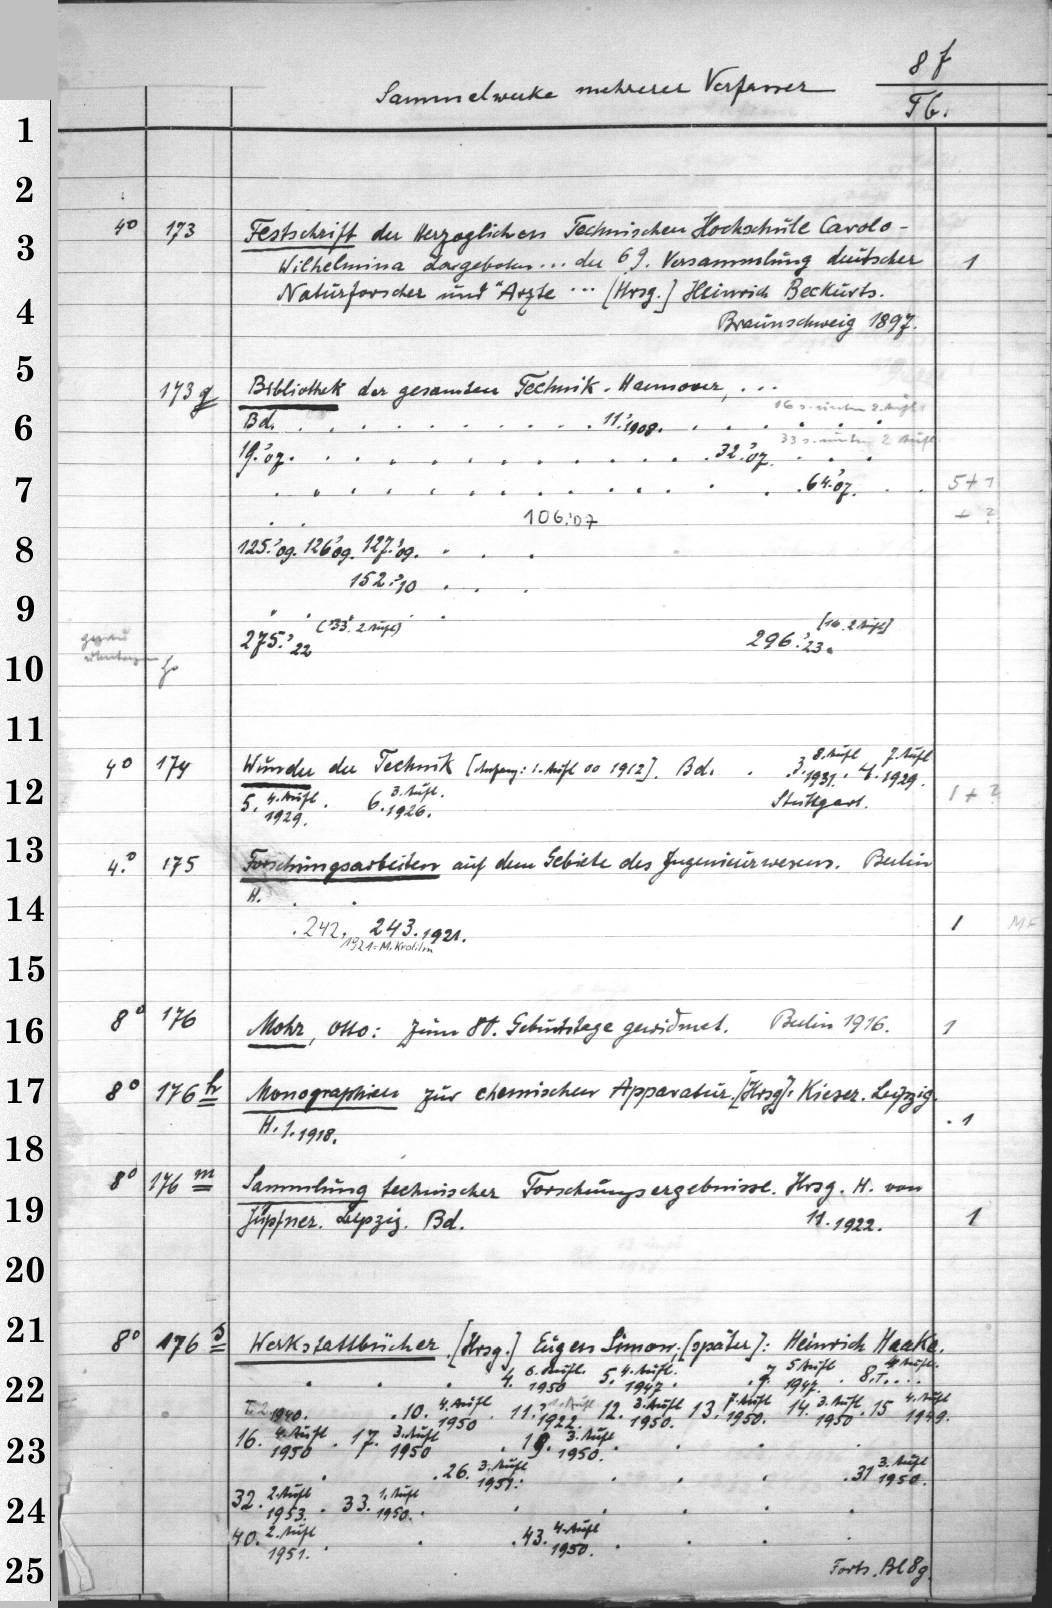 8 f
Sammelwerke mehrerer Verfasser
Tb.
1
2
4° 173 Festschrift der Herzoglichen Technischen Hochschule Carolo-
3
Wilhelmina dargeboten... der 69. Versammlung deutscher 1
Naturforscher und Ärzte ... [Hrsg.] Heinrich Beckurts.
4
Braunschweig 1897.
5
173 g Bibliothek der gesamten Technik. Hannover, ...
16 s. unten 2. Aufl
6
Bd. . . . . . . . . . . 11.'1908. . . . . .
33 s. unten 2 Aufl
19.'07. . . . . . . . . . . . 32.'07. . . .
7
. . . . . . . . . . . . . . 64.'07. . . 5+1
. . 106.'07 + ?
8
125.'09. 126'09. 127.'09. . . .
152.'10 . . .
9
. . . .
("33". 2 Aufl) [16. 2 Aufl]
275.'22 296.'23.
10
11
4° 174 Wunder der Technik [Anfang: 1. Aufl 00 1912]. Bd. . . 3. 8. Aufl 1931. 4. 7. Aufl 1929.
12
5. 4. Aufl 1929. . 6. 3. Aufl. 1926. Stuttgart. 1 + ?
13
4.° 175 Forschungsarbeiten auf dem Gebiete des Ingenieurwesens. Berlin
H. . .
14
. 242. 243. 1921. 1 MF
15
8° 176 Mohr, Otto: Zum 80. Geburtstage gewidmet. Berlin 1916. 1
16
17
8° 176 h Monographien zur chemischen Apparatur. [Hrsg]: Kieser. Leipzig.
H. 1. 1918. . 1
18
8° 176 m Sammlung technischer Forschungsergebnisse. Hrsg. H. von
19
Jüptner. Leipzig. Bd. 11. 1922. 1
20
21
8° 176 s Werkstattbücher [Hrsg.] Eugen Simon. [später]: Heinrich Haake.
. . . 4. 6. Aufl. 1950 5. 4. Aufl. 1947 . . 7. 5 Aufl 1947. . 8. I. ...
22
1940. . 10. 4. Aufl 1950 . 11. 1922. 12. 3. Aufl 1950. 13. 7. Aufl 1950. 14. 3. Aufl 1950 . 15 4. Aufl 1949.
16. 4. Aufl 1950 . 17. 3. Aufl 1950 . 19. 3. Aufl 1950. . . .
23
. . 26. 3. Aufl 1951. . . . . 31 3. Aufl 1950.
32. 2. Aufl 1953. . 33. 1. Aufl 1950. . . . . . .
24
40. 2. Aufl 1951. . . . 43. 4. Aufl 1950. . . . .
25
Forts. Bl 8g.